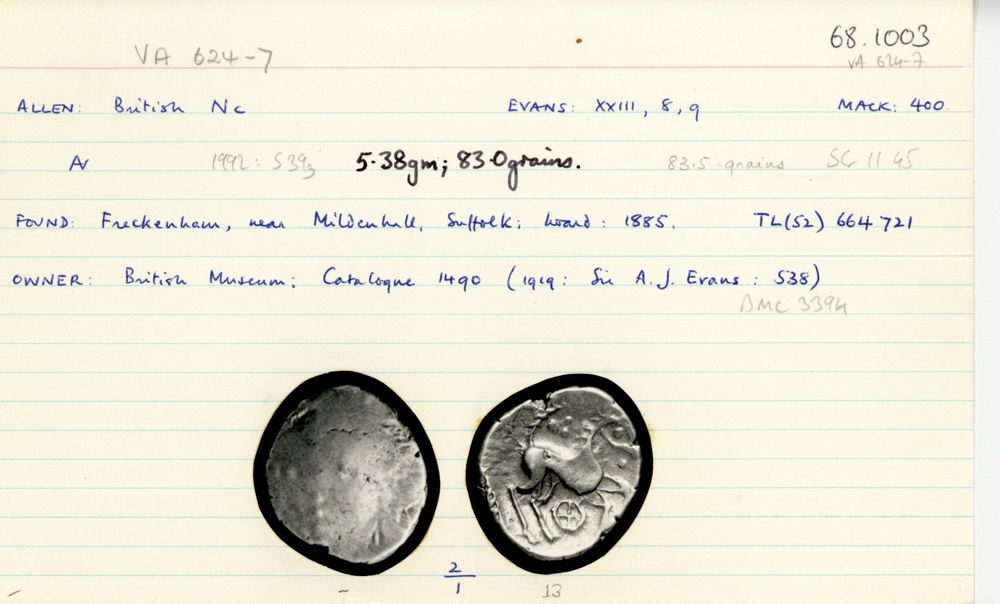 VA 624-7 68.1003
VA 624-7
ALLEN: British Nc EVANS: XXIII, 8, 9 MACK: 400
AV 1992: 539g 5.38gm; 83.0grains. 83.5 grains SG 11.45
FOUND: Freckenham, near Mildenhall, Suffolk; hoard: 1885. TL(52) 664 721
OWNER: British Museum; Catalogue 1490 (1919: Sir A.J. Evans: 538)
BMC 3394
2
1
~ 13